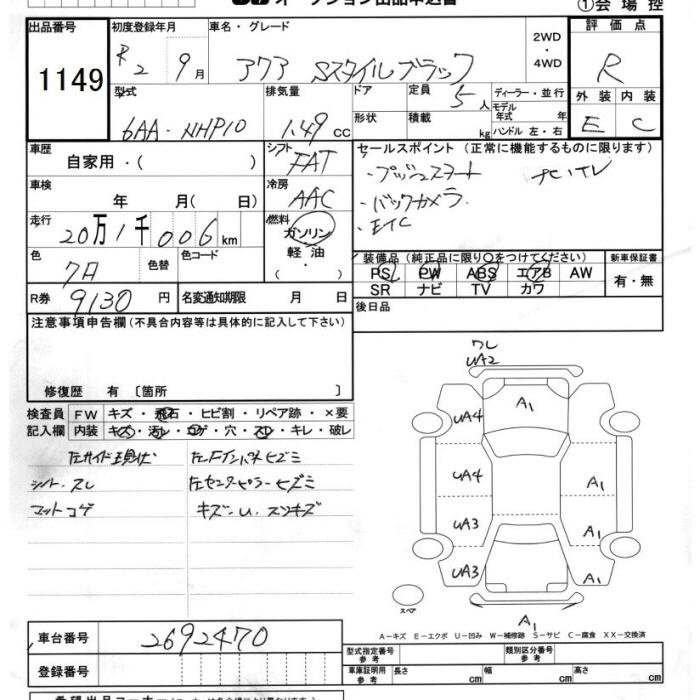 オークション出品申込書
①会場控
出品番号 1149
初度登録年月 R2 9月
車名・グレード アクア Sスタイルブラック
2WD ・ 4WD
評価点 R
外装 E 内装 C
型式 6AA-NHP10
排気量 1.49 cc
ドア
形状
定員 5人
積載 kg
ディーラー・並行
モデル年式 年
ハンドル 左・右
車歴 自家用・( )
シフト FAT
車検 年 月( 日)
冷房 AAC
走行 20万1千006km
燃料 ガソリン 軽油 ・
色 色替 色コード
R券 9130円
名変通知期限 月 日
セールスポイント (正常に機能するものに限ります)
・プッシュスタート ナビ・TV
・バックカメラ
・ETC
装備品 (純正品に限り○をつけてください)
PS PW ABS エアB AW
SR ナビ TV カワ
新車保証書 有・無
後日品
注意事項申告欄 (不具合内容等は具体的に記入して下さい)
修復歴 有 〔箇所 〕
検査員記入欄
FW キズ・飛石・ヒビ割・リペア跡・×要
内装 キズ・汚レ・コゲ・穴・スレ・キレ・破レ
左サイド現状 左Fインパネヒズミ
シート・スレ 左センターピラーヒズミ
マットコゲ キズ・U.スリキズ
ワレ
UA2
A1
UA4
UA4 A1
UA3 A1
UA3 A1
スペア
A-キズ E-エクボ U-凹み W-補修跡 S-サビ C-腐食 XX-交換済
車台番号 2692470
登録番号
型式指定番号 参考
類別区分番号 参考
車庫証明用 参考 長さ cm 幅 cm 高さ cm